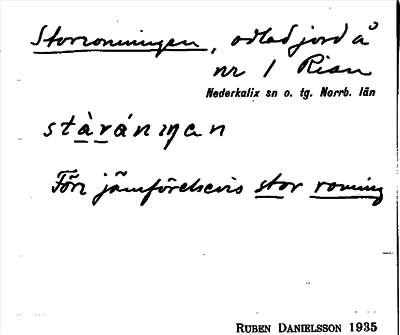 Storroningen, odlad jord å
nr 1 Rian
Nederkalix sn o. tg. Norrb. län
stàrániŋan
Förr jämförelsevis stor roning
RUBEN DANIELSSON 1935